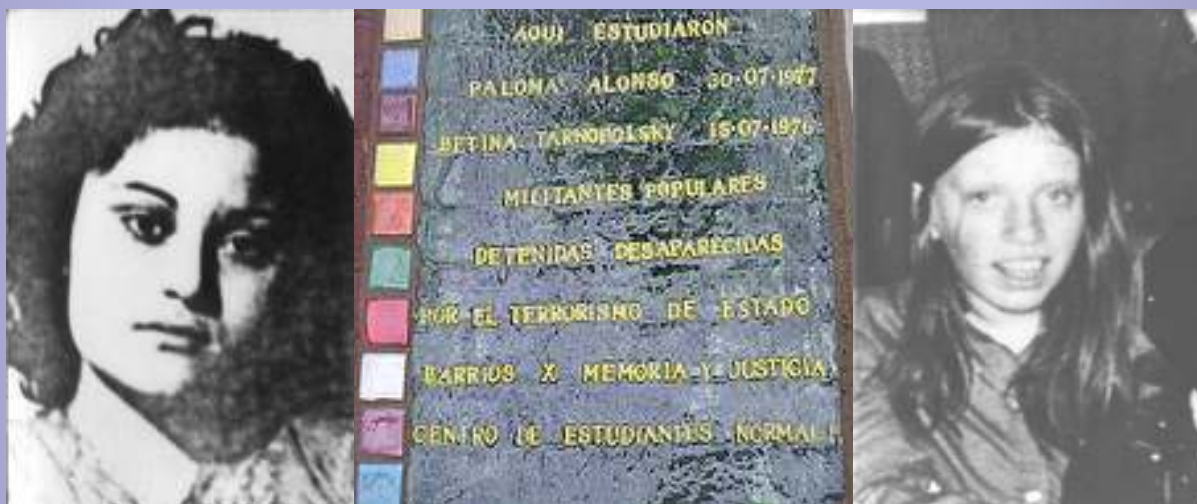 AQUI ESTUDIARON
PALOMA ALONSO 30·07·1977
BETINA TARNOPOLSKY 15·07·1976
MILITANTES POPULARES
DETENIDAS DESAPARECIDAS
POR EL TERRORISMO DE ESTADO
BARRIOS X MEMORIA Y JUSTICIA
CENTRO DE ESTUDIANTES NORMAL